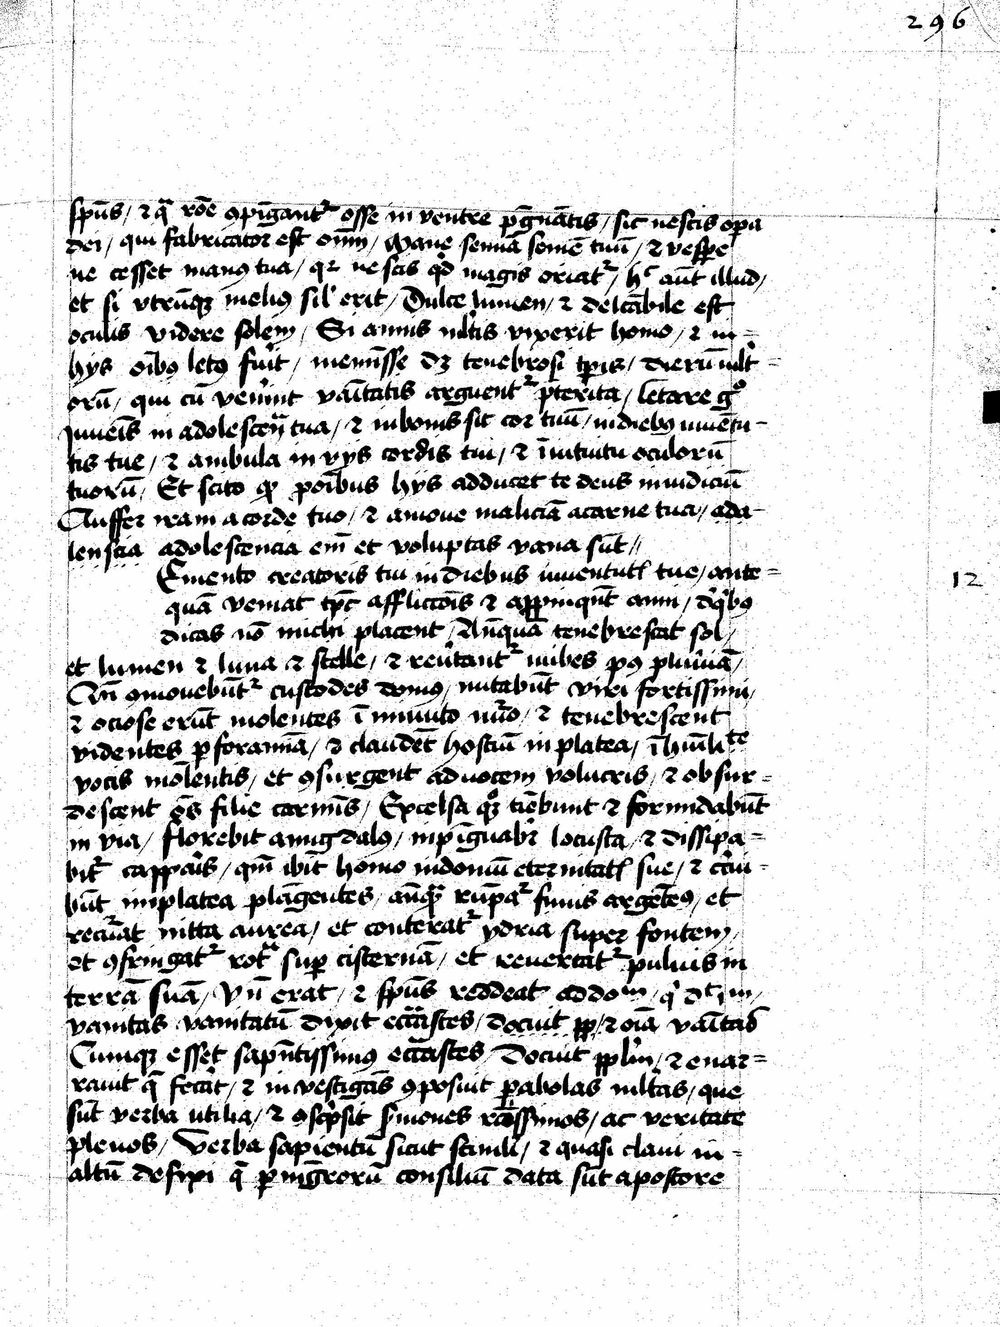 296
spūs / ⁊ qᷓ rōe ꝯpīgant᷑ osse in ventre p̄gnātis / sic nescis opa
dei / qui fabricator est oīm / Mane semīa semē tuū / ⁊ vespe
ne cesset manꝰ tua / qꝛ nescis qd̄ magis oriat᷑ / hͨ aūt illud /
et si vtrūqꝫ meliꝰ sil' erit / Dulce lumen / ⁊ delcābile est
oculis videre solem / Si annis ml̄tis vixerit homo / ⁊ in =
hijs oībꝰ letꝰ fūit / meminsse dꝫ tenebrosi tp̄is / dierū ml̄t =
orū / qui cū venīnt vāītatis arguent᷑ p̄terita / letare gͦ
Iuuenīs in adolescen̄ tua / ⁊ in bonis sit cor tuū / in diebꝰ iuuētu -
tis tue / ⁊ ambula in vijs cordis tui / ⁊ ī intuitu oculorū
tuorū / Et scito ꝙ p oībus hijs adducet te deus in iudiciū
Auffer iram a corde tuo / ⁊ amoue maliciā a carne tua / ado -
lenscia adolescencia em̄ et voluptas vana sūt //
Emento creatoris tui in diebus iuuentutꝭ tue / ante =
12
quā veniat tp̄ᷤ afflictōis ⁊ appinqūt anni / d̄ qͥbꝰ
dicas nō michi placent / An̄quā tenebrescat sol /
et lumen ⁊ luna ⁊ stelle / ⁊ reūtant᷑ nubes pꝰ pluuiā /
Qn̄ ꝯmouebūt᷑ custodes domꝰ / nutabūt viri fortissimi /
⁊ ociose erūt molentes ī minuto nūo / ⁊ tenebrescent
videntes p foramīa / ⁊ claudēt hostiū in platea / ī hūīliᵗᵉ
vocis molentis / et ꝯsurgent ad vocem volucris / ⁊ obsur =
descent oēs filie carmīs / Excelsa qͦꝫ tiēbunt ⁊ formidabūt
in via / florebit amigdalꝰ / inpīguabr̄ locusta / ⁊ dissipa =
bit᷑ cappāis / qm̄ ibit homo in domū eternitatꝭ sue / ⁊ cͥcui -
būt in platea plāgentes / an̄qᷓꝫ rūpat᷑ funis argēteꝰ / et
recurͣat vitta aurea / et conterat᷑ ydria super fontem /
et ꝯfringat᷑ rotᷓ sup cisternā / et reuertat᷑ puluis in
terrā suā / vn̄ erat / ⁊ spūs reddeat ad dom̄ / qͥ dᵗ iᵐ /
vanitas vanitatū dixit ecc̄astes / docuit pp / ⁊ oīa vāītas
Cumqꝫ esset sapn̄tissimꝰ ecc̄astes / Docuit pplm̄ / ⁊ enar =
rauit q̄ fecͣit / ⁊ investigās ꝯposuit pabolas ml̄tas / que
sūt verba vtilia / ⁊ ꝯscp̄sit smones rc̄issimos / ac veritate
plenos / Verba sapientū sicut stimli / ⁊ quasi claui in =
altū defixi q̄ p mgr̄orū consiliū data sūt a pastore